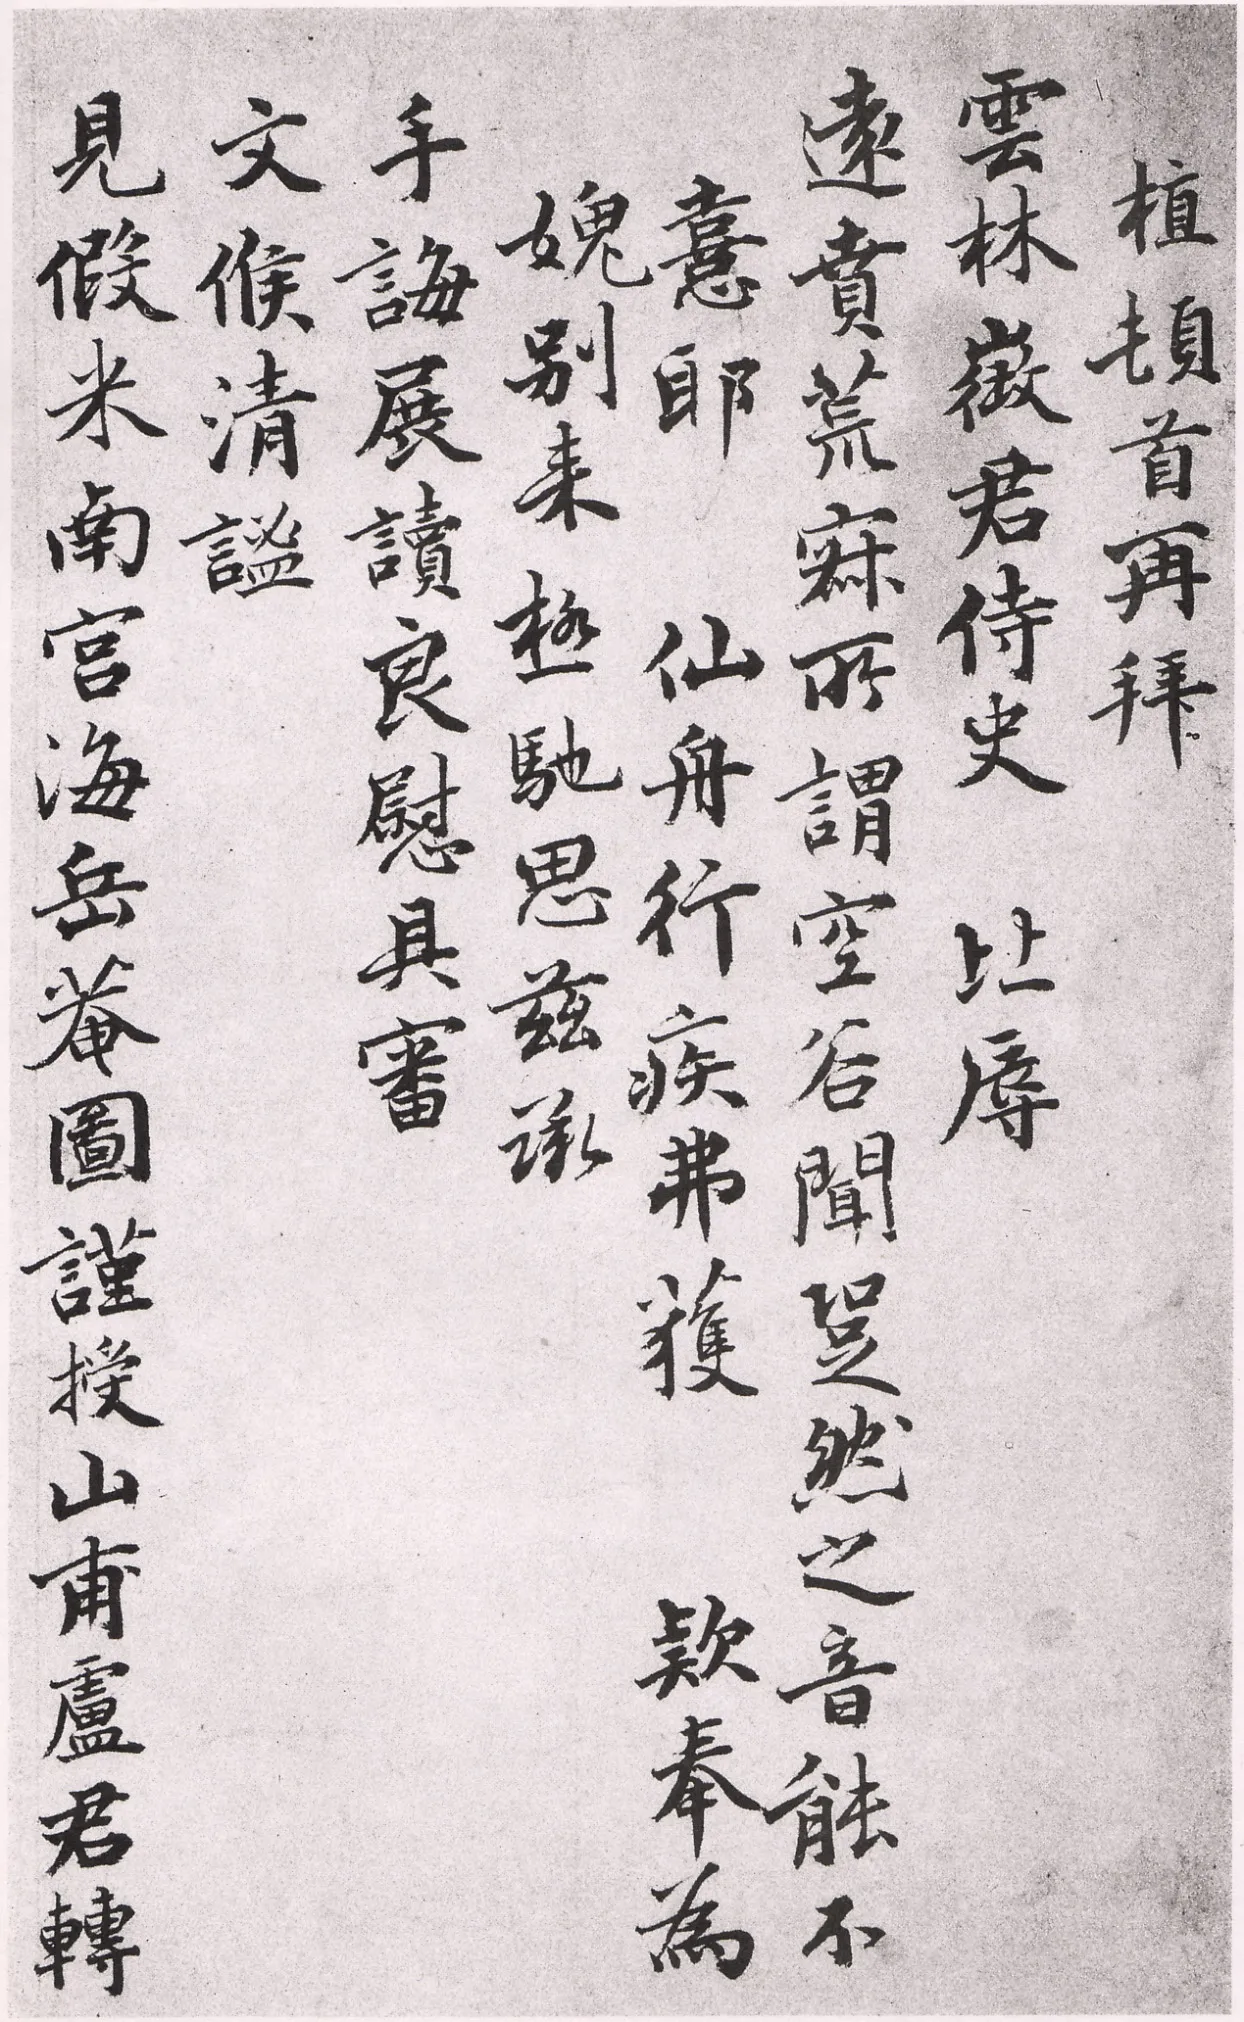 植頓首再拜
雲林徵君侍史 比辱
遠賁荒寂所謂空谷聞跫然之音能不
憙耶 仙舟行疾弗獲 款奉為
媿別来極馳思茲承
手誨展讀良慰具審
文候清謐
見假米南宮海岳菴圖謹授山甫盧君轉